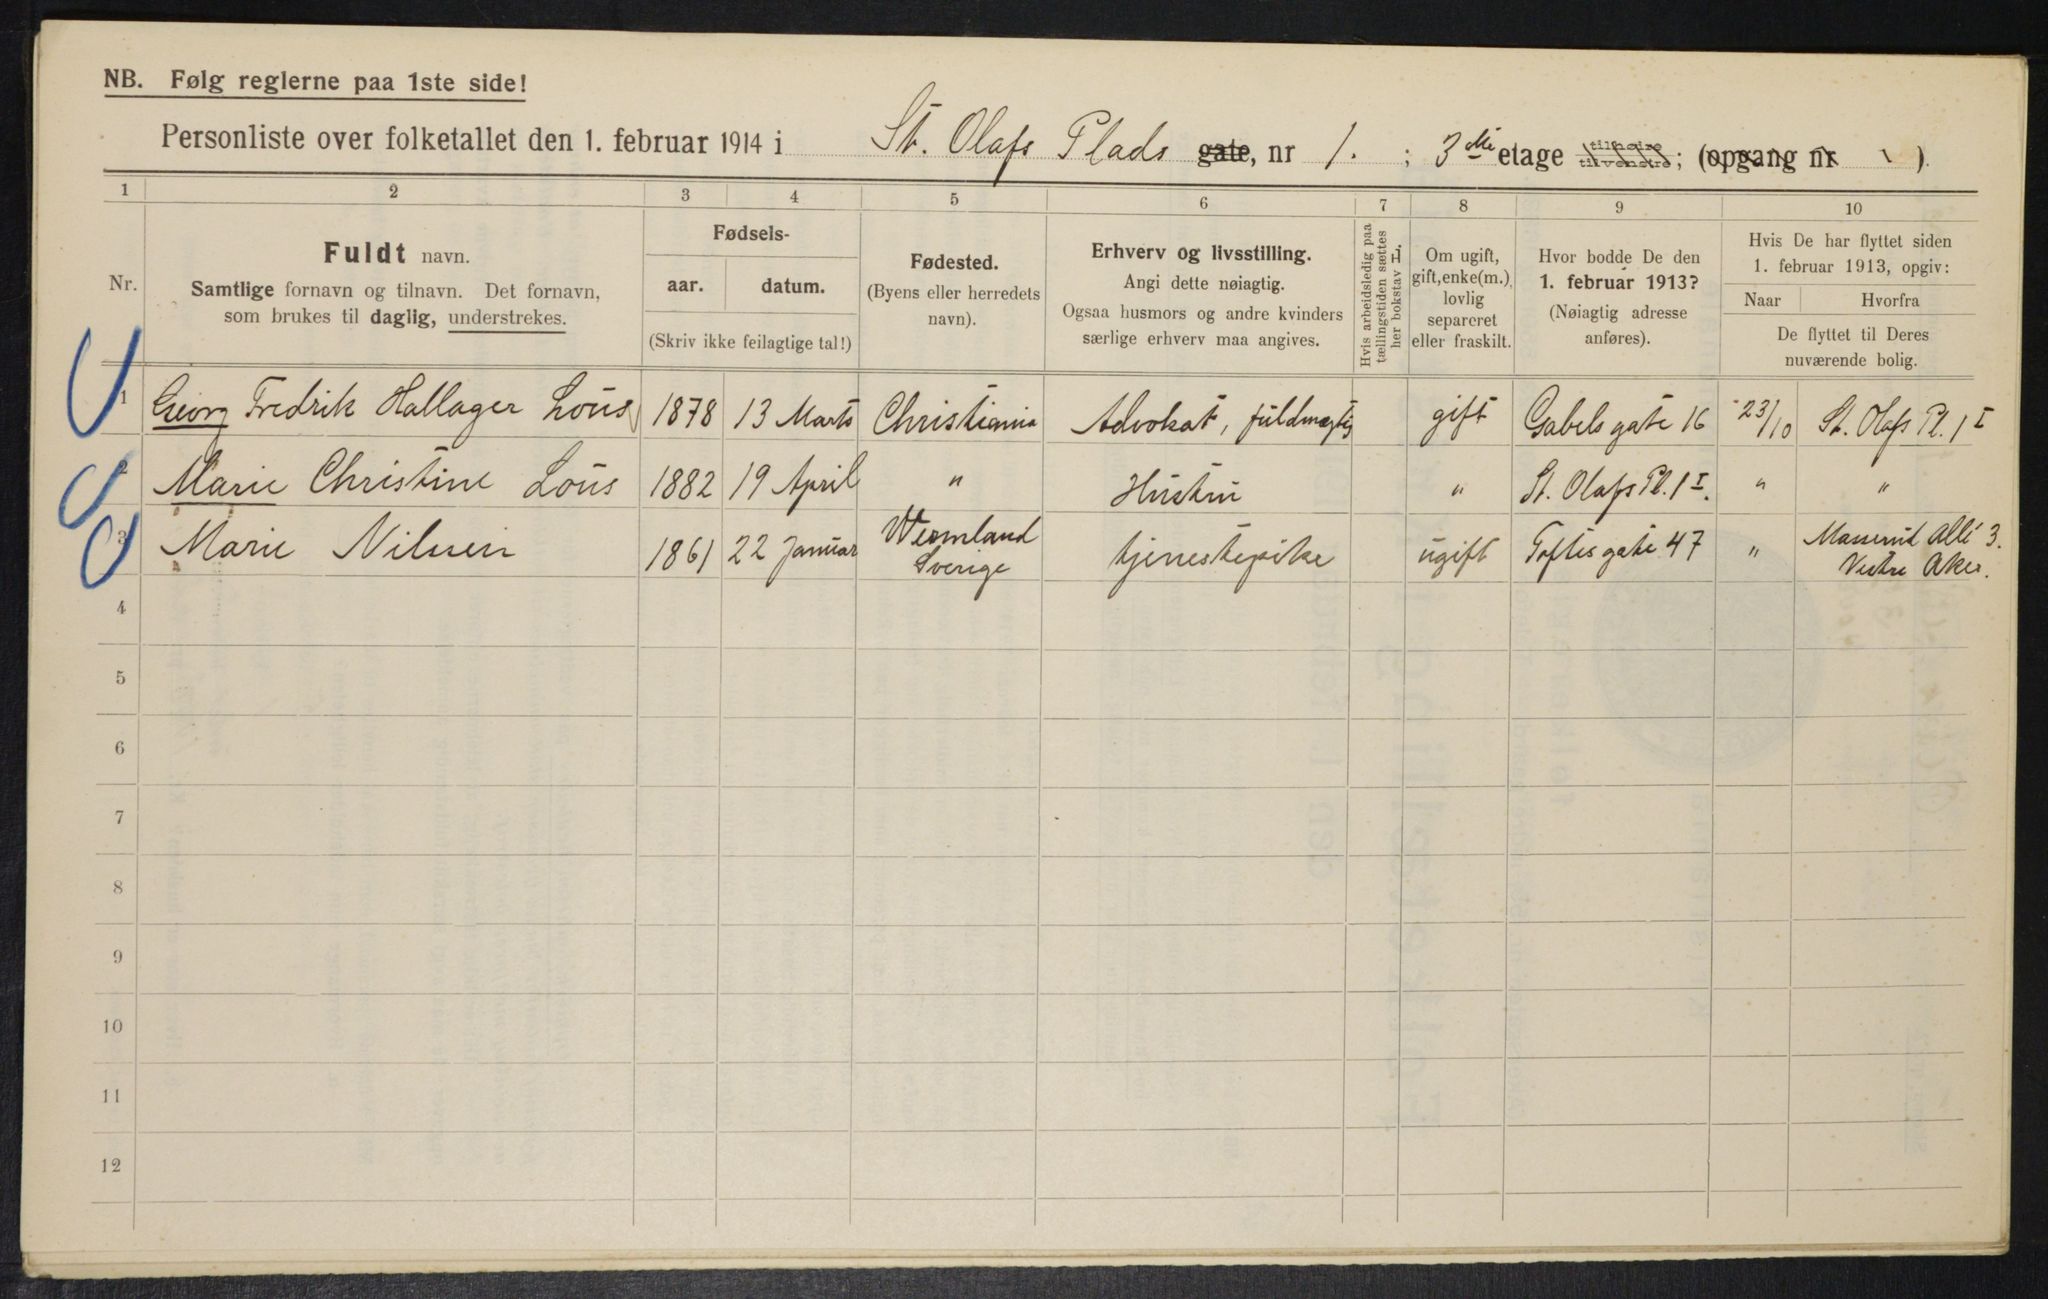 NB. Følg reglerne paa 1ste side!
Personliste over folketallet den 1. februar 1914 i St. Olafs Plads gate, nr 1. ; 3die etage tilhøire tilvenstre; (opgang nr ).
1 2 3 4 5 6 7 8 9 10
Nr.
Fuldt navn.
Samtlige fornavn og tilnavn. Det fornavn,
som brukes til daglig, understrekes.
Fødsels-
aar. datum.
(Skriv ikke feilagtige tal!)
Fødested.
(Byens eller herredets
navn).
Erhverv og livsstilling.
Angi dette nøiagtig.
Ogsaa husmors og andre kvinders
særlige erhverv maa angives.
Hvis arbeidsledig paa
tællingstiden sættes
her bokstav L.
Om ugift,
gift, enke(m.),
lovlig
separeret
eller fraskilt.
Hvor bodde De den
1. februar 1913?
(Nøiagtig adresse
anføres).
Hvis De har flyttet siden
1. februar 1913, opgiv:
Naar Hvorfra
De flyttet til Deres
nuværende bolig.
1 Georg Fredrik Hallager Loüs 1878 13 Marts Christiania Advokat, fuldmægtig gift Gabels gate 16 23/10 St. Olafs Pl. 1 I
2 Marie Christine Loüs 1882 19 April " Hustru " St. Olafs Pl. 1 I. " "
3 Marie Nilsen 1861 22 Januar Wermland Sverige tjenestepike ugift Toftes gate 47 " Masserud Allé 3. Vestre Aker.
4
5
6
7
8
9
10
11
12